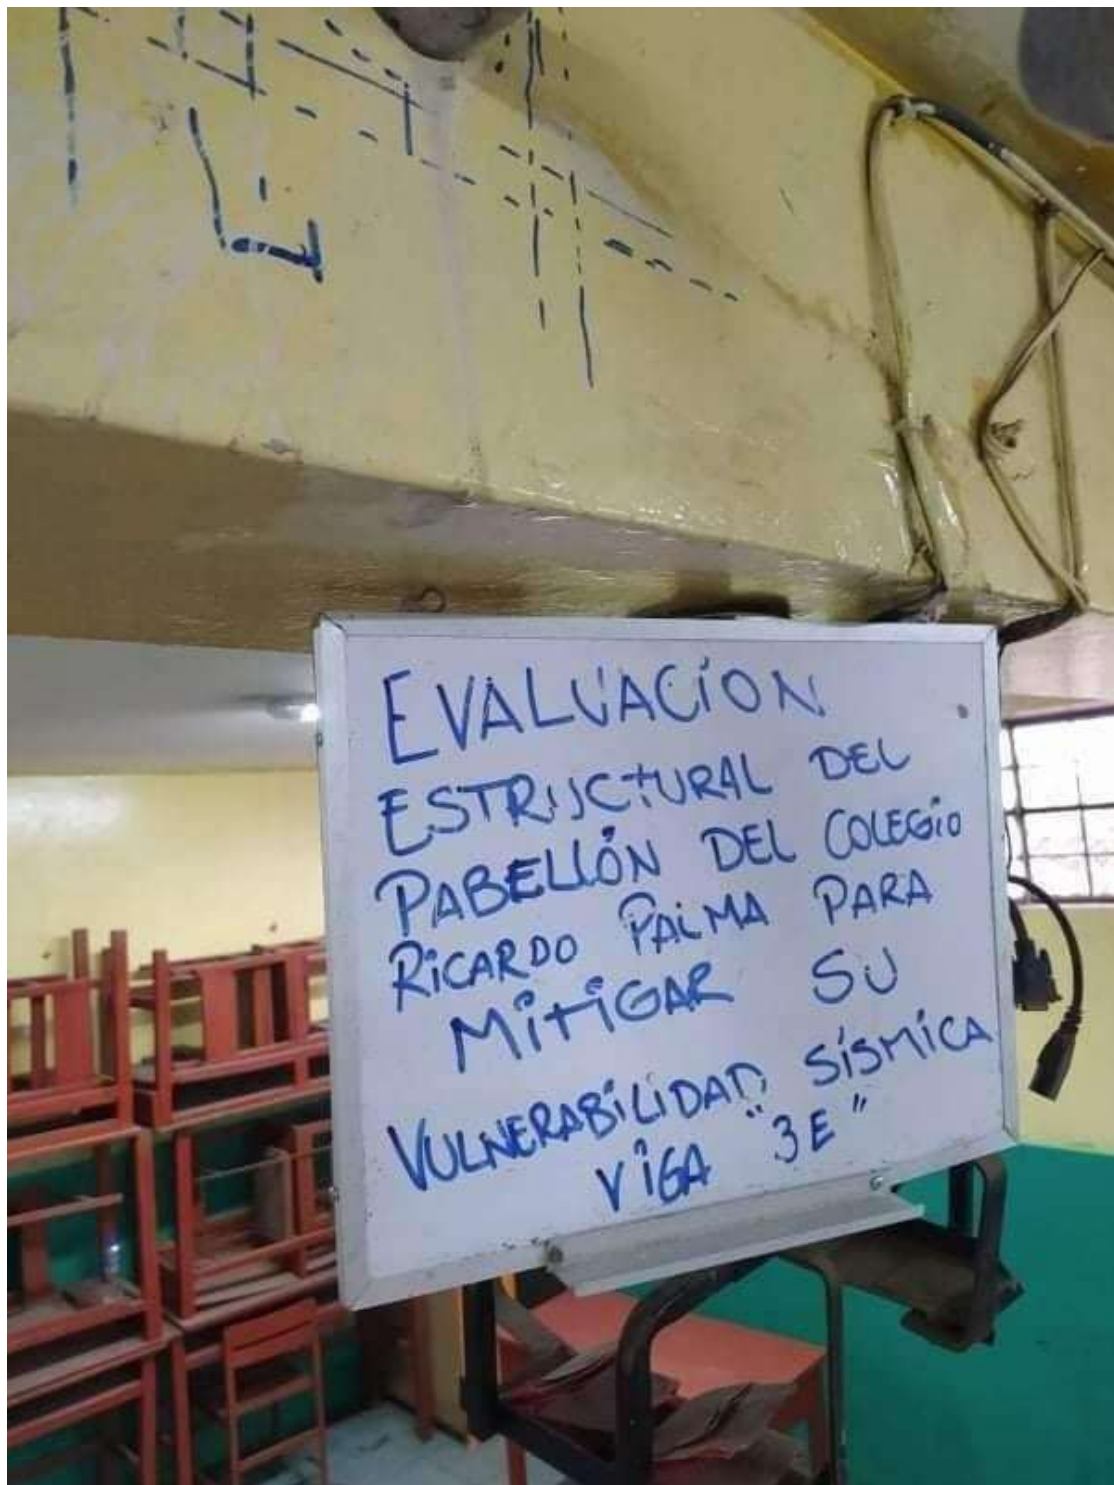 EVALUACION
ESTRUCTURAL DEL
PABELLÓN DEL COLEGIO
RICARDO PALMA PARA
MITIGAR SU
VULNERABILIDAD SÍSMICA
VIGA "3E"